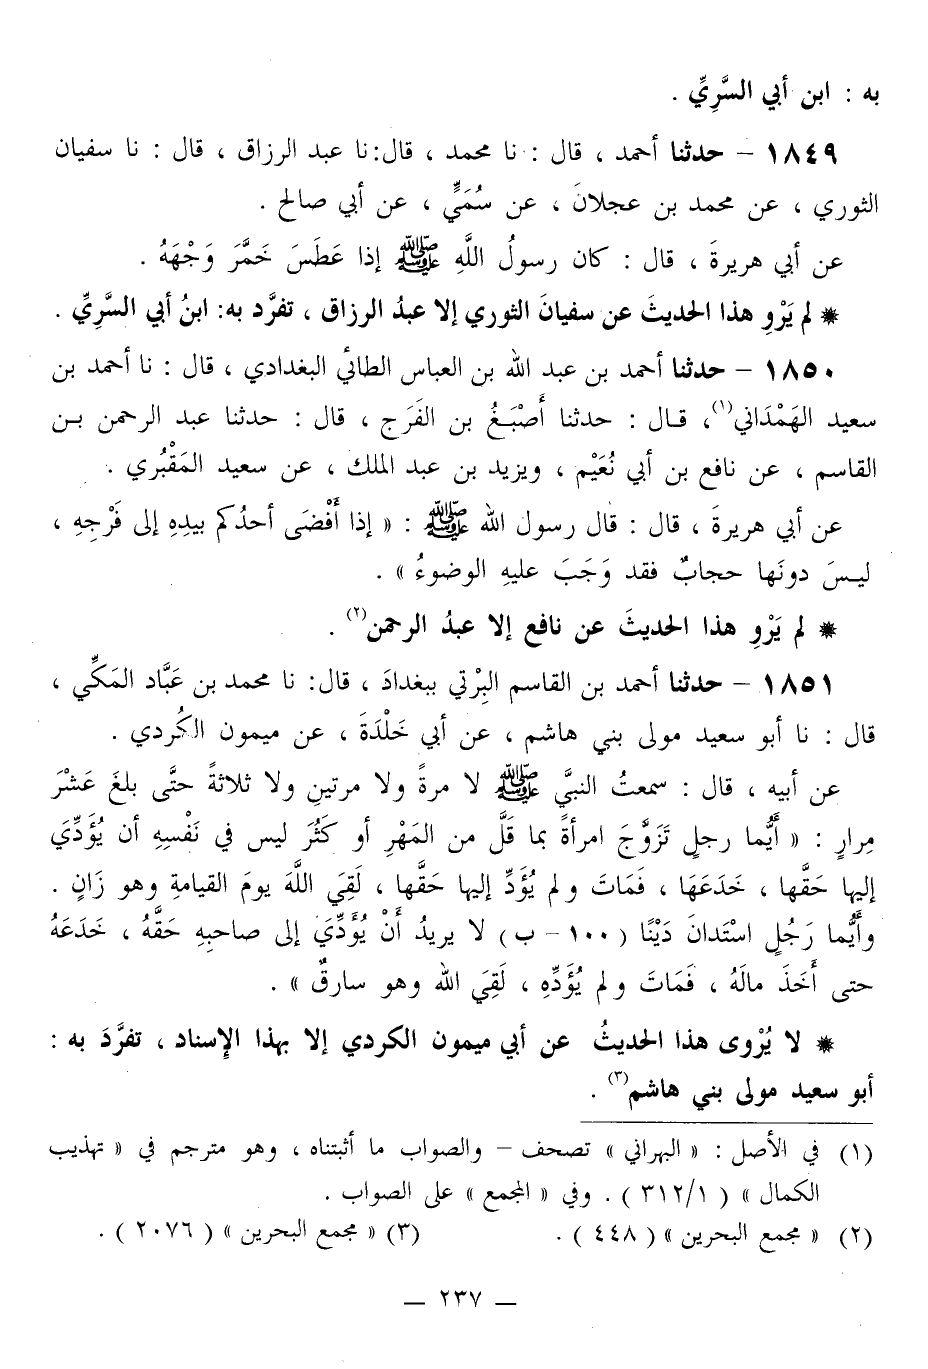 به : ابن أبي السَّرِيِّ .
١٨٤٩ - حدثنا أحمد ، قال : نا محمد ، قال: نا عبد الرزاق ، قال : نا سفيان
الثوري ، عن محمد بن عجلانَ ، عن سُمَيٍّ ، عن أبي صالح .
عن أبي هريرةَ ، قال : كان رسولُ اللَّهِ ﷺ إذا عَطَسَ خَمَّرَ وَجْهَهُ .
* لم يَرْوِ هذا الحديثَ عن سفيانَ الثوري إلا عبدُ الرزاق ، تفرَّد به: ابنُ أبي السَّرِيِّ .
١٨٥٠ - حدثنا أحمد بن عبد الله بن العباس الطائي البغدادي ، قال : نا أحمد بن
سعيد الهَمْدَاني(١)، قال : حدثنا أَصْبَغُ بن الفَرَج ، قال : حدثنا عبد الرحمن بن
القاسم ، عن نافع بن أبي نُعَيْم ، ويزيد بن عبد الملك ، عن سعيد المَقْبُري .
عن أبي هريرةَ ، قال : قال رسول الله ﷺ : « إذا أَفْضَى أحدُكم بيدِهِ إلى فَرْجِهِ ،
ليسَ دونَها حجابٌ فقد وَجَبَ عليهِ الوضوءُ » .
* لم يَرْوِ هذا الحديثَ عن نافع إلا عبدُ الرحمن(٢) .
١٨٥١ - حدثنا أحمد بن القاسم البِرْتي ببغدادَ ، قال: نا محمد بن عَبَّاد المَكِّي ،
قال : نا أبو سعيد مولى بني هاشم ، عن أبي خَلْدَةَ ، عن ميمون الكُردي .
عن أبيه ، قال : سمعتُ النبيَّ ﷺ لا مرةً ولا مرتينِ ولا ثلاثةً حتَّى بلغَ عَشْرَ
مِرارٍ : « أَيُّما رجلٍ تَزَوَّجَ امرأةً بما قَلَّ من المَهْرِ أو كَثُرَ ليس في نَفْسِهِ أن يُؤَدِّيَ
إليها حَقَّها ، خَدَعَهَا ، فَمَاتَ ولم يُؤَدِّ إليها حَقَّها ، لَقِيَ اللَّهَ يومَ القيامةِ وهو زَانٍ .
وأَيُّما رَجُلٍ اسْتَدانَ دَيْنًا ( ١٠٠ - ب ) لا يريدُ أَنْ يُؤَدِّيَ إلى صاحبِهِ حَقَّهُ ، خَدَعَهُ
حتى أَخَذَ مالَهُ ، فَمَاتَ ولم يُؤَدِّهِ ، لَقِيَ الله وهو سارقٌ » .
* لا يُرْوى هذا الحديثُ عن أبي ميمون الكردي إلا بهذا الإسناد ، تفرَّدَ به :
أبو سعيد مولى بني هاشم(٣) .
(١) في الأصل : « البهراني » تصحف – والصواب ما أثبتناه ، وهو مترجم في « تهذيب
الكمال » ( ٣١٢/١ ) . وفي « المجمع » على الصواب .
(٢) « مجمع البحرين » ( ٤٤٨ ) . (٣) « مجمع البحرين » ( ٢٠٧٦ ) .
— ٢٣٧ —